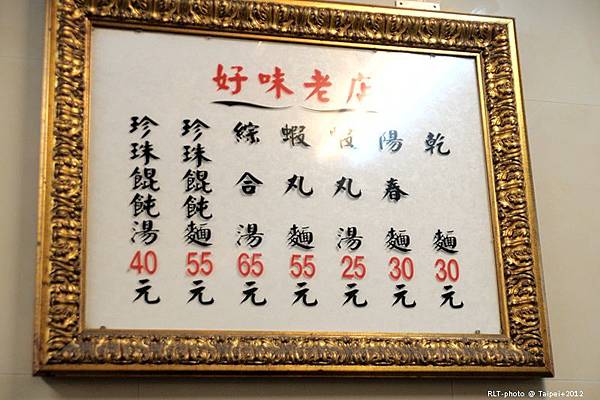 好味老店
乾麵30元
陽春麵30元
蝦丸湯25元
蝦丸麵55元
綜合湯65元
珍珠餛飩麵55元
珍珠餛飩湯40元
RLT-photo @ Taipei+2012